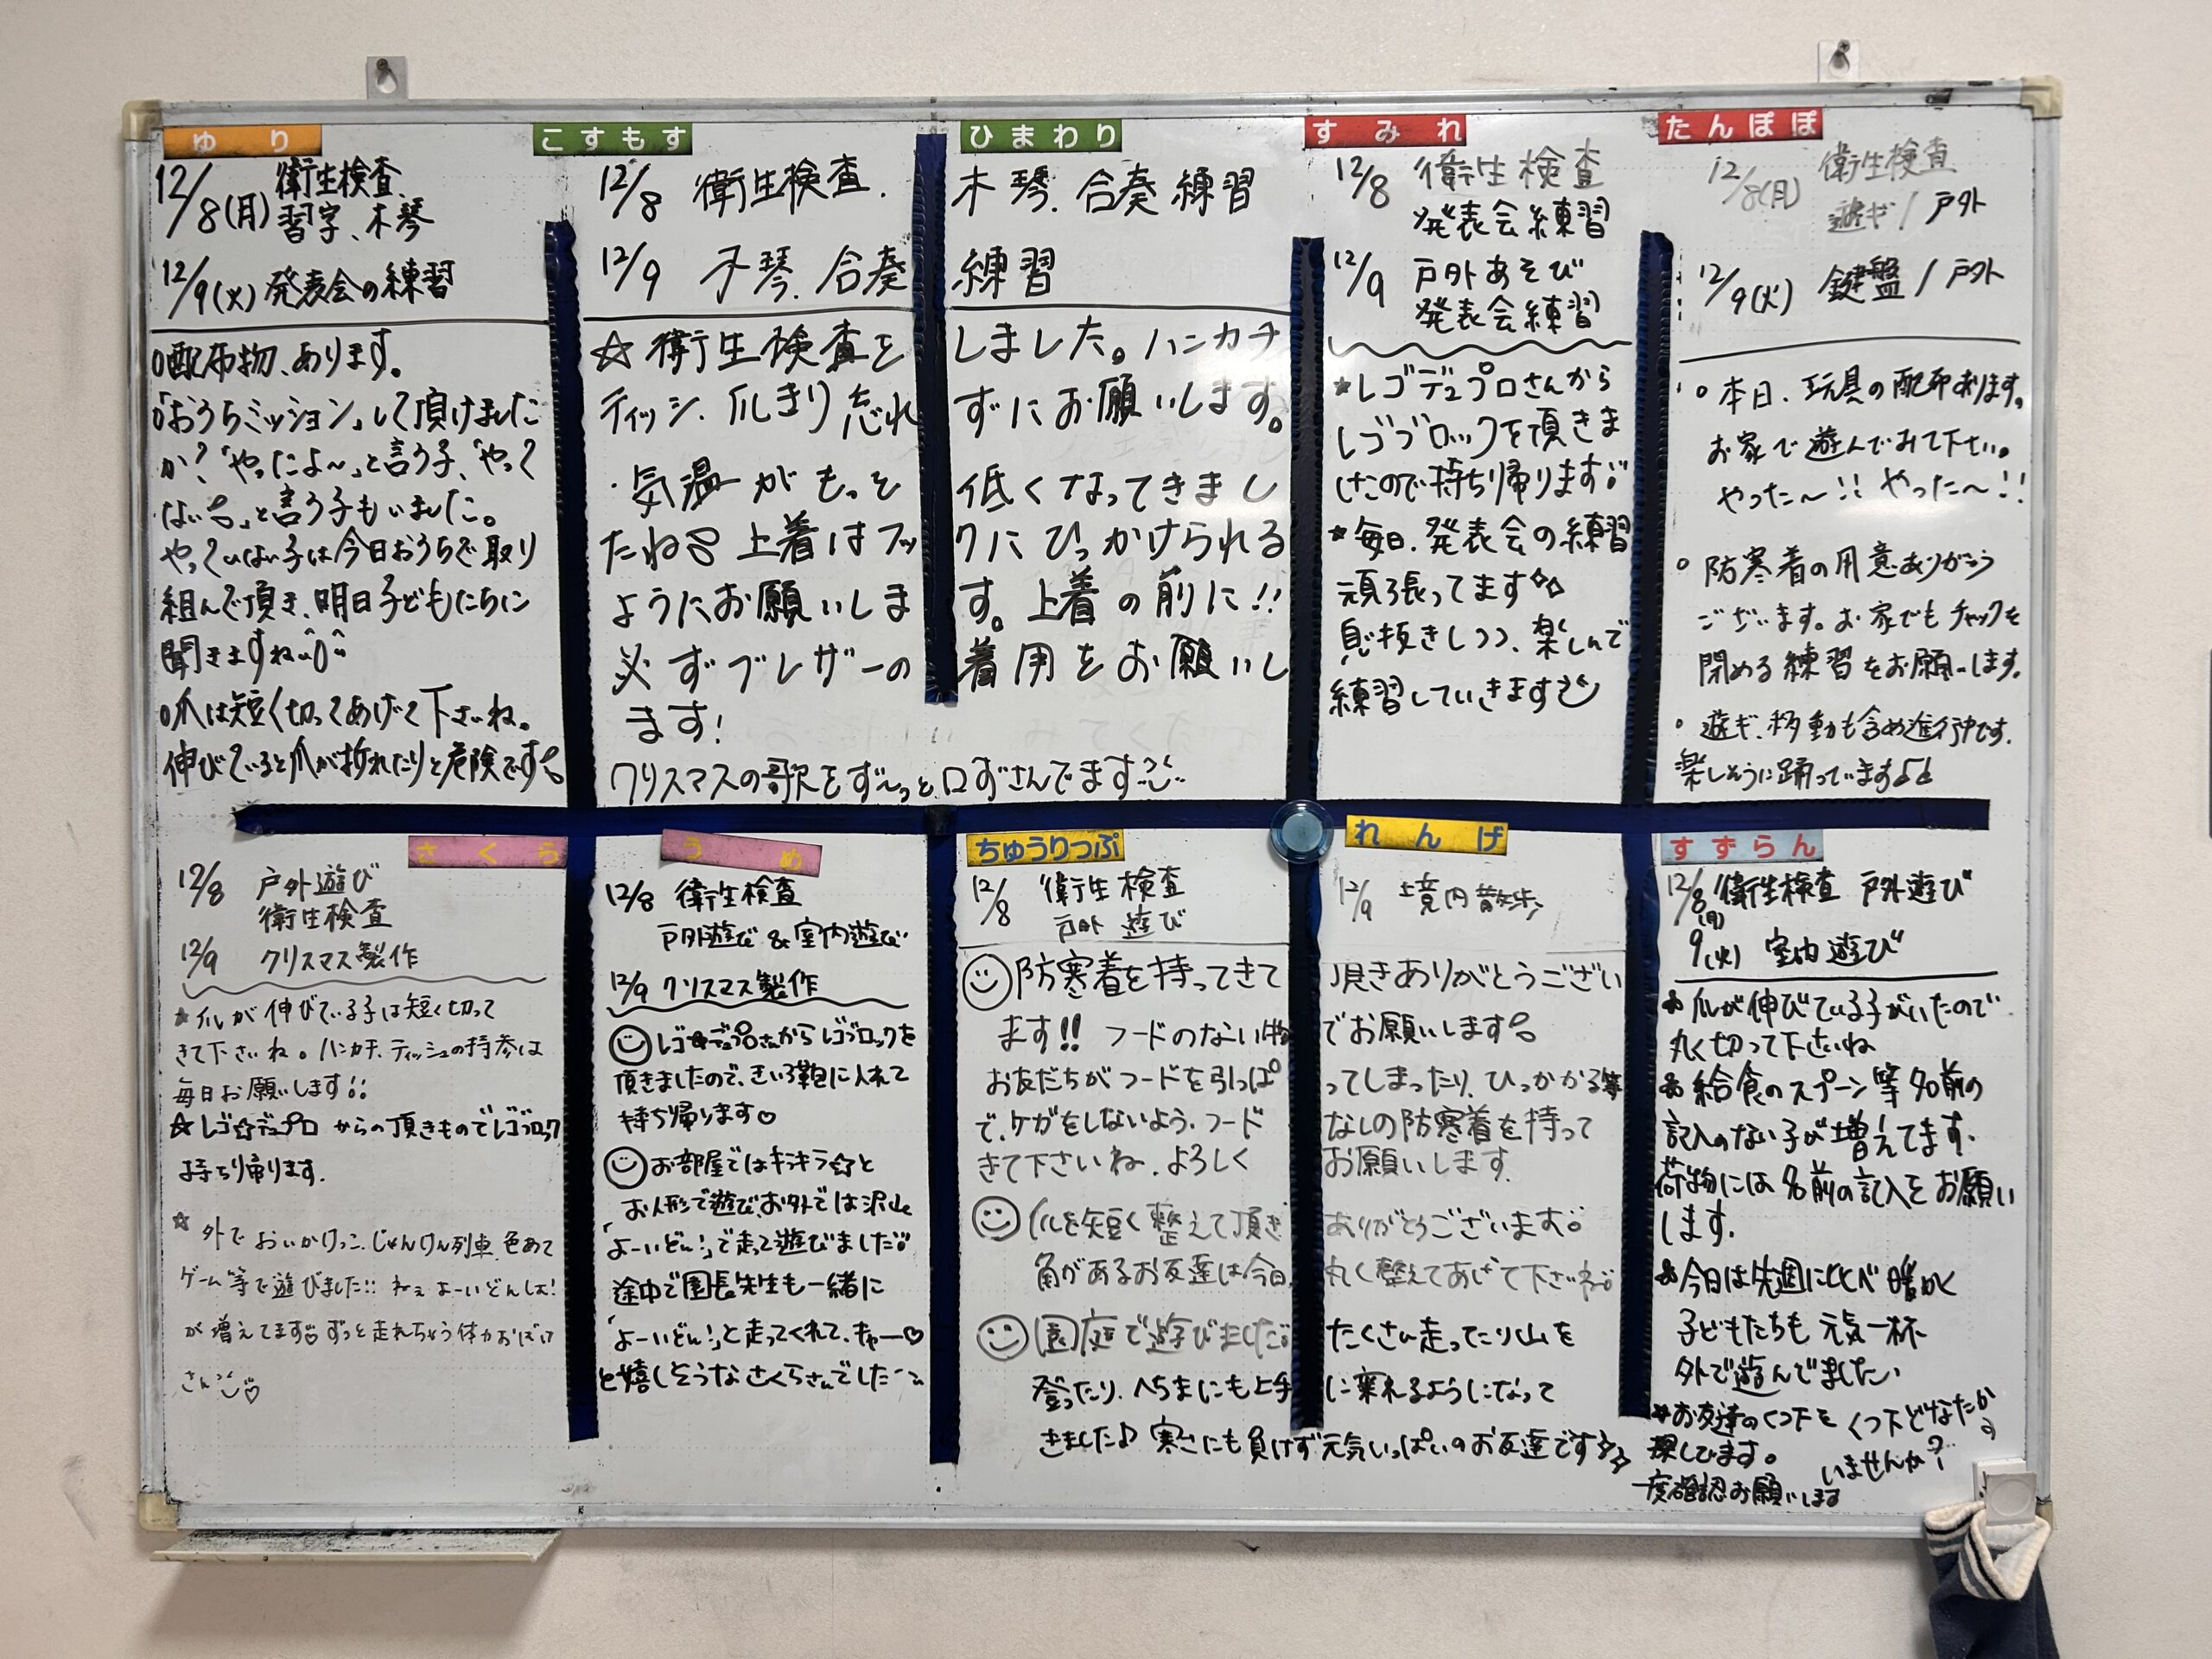 ゆり
12/8(月) 衛生検査
習字、木琴
12/9(火) 発表会の練習
○配布物、あります。
○「おうちミッション」して頂けました
か?「やったよ〜」と言う子、「やって
ない」と言う子もいました。
やっていない子は今日おうちで取り
組んで頂き、明日子どもたちに
聞きますね
○爪は短く切ってあげて下さいね。
伸びていると爪が折れたりと危険です
こすもす ひまわり
12/8 衛生検査. 木琴.合奏練習
12/9 木琴.合奏練習
☆衛生検査をしました。ハンカチ
ティッシ.爪きり忘れずにお願いします。
・気温がもっと低くなってきまし
たね 上着はフックにひっかけられる
ようにお願いします。上着の前に!!
必ずブレザーの着用をお願いし
ます!
クリスマスの歌をず〜っと口ずさんでます
すみれ
12/8 衛生検査
発表会練習
12/9 戸外あそび
発表会練習
★レゴデュプロさんから
レゴブロックを頂きま
したので持ち帰ります
★毎日、発表会の練習
頑張ってます
息抜きしつつ、楽しんで
練習していきます
たんぽぽ
12/8(月) 衛生検査
遊ギ/戸外
12/9(火) 鍵盤/戸外
○本日、玩具の配布あります。
お家で遊んでみて下さい。
やった〜!! やった〜!!
○防寒着の用意ありがとう
ございます。お家でもチャックを
閉める練習をお願いします。
○遊ギ、移動も含め進行中です。
楽しそうに踊っています♪♪
さくら
12/8 戸外遊び
衛生検査
12/9 クリスマス製作
★爪が伸びている子は短く切って
きて下さいね。ハンカチ、ティッシュの持参は
毎日お願いします!!
☆レゴ☆デュプロ からの頂きものでレゴブロック
持ち帰ります.
☆外で おいかけっこ、じゃんけん列車、色あて
ゲーム等で遊びました!! ねぇよーいどんしよ!
が増えてます ずっと走れちゃう体力おばけ
さん♡
うめ
12/8 衛生検査
戸外遊び&室内遊び
12/9 クリスマス製作
レゴ★デュプロさんからレゴブロックを
頂きましたので、きいろ鞄に入れて
持ち帰ります♡
お部屋ではキラキラ☆と
お人形で遊び、お外では沢山
「よーいどん!」で走って遊びました
途中で園長先生も一緒に
「よーいどん!」と走ってくれて、きゃー♡
と嬉しそうなさくらさんでした
ちゅうりっぷ れんげ
12/8 衛生検査 12/9 境内散歩
戸外遊び
防寒着を持ってきて頂きありがとうござい
ます!! フードのない物でお願いします
お友だちがフードを引っぱってしまったり、ひっかかる等
で、ケガをしないよう、フードなしの防寒着を持って
きて下さいね.よろしくお願いします.
爪を短く整えて頂きありがとうございます
角があるお友達は今日、丸く整えてあげて下さいね
園庭で遊びました たくさん走ったり山を
登ったり、へちまにも上手に乗れるようになって
きました♪ 寒さにも負けず元気いっぱいのお友達です
すずらん
12/8(月) 衛生検査 戸外遊び
9(火) 室内遊び
爪が伸びている子がいたので
丸く切って下さいね
給食のスプーン等名前の
記入のない子が増えてます.
荷物には名前の記入をお願い
します.
今日は先週に比べ暖かく
子どもたちも元気一杯
外で遊んでました
お友達のくつ下を
探してます。
くつ下どなたか
いませんか?
一度確認お願いします